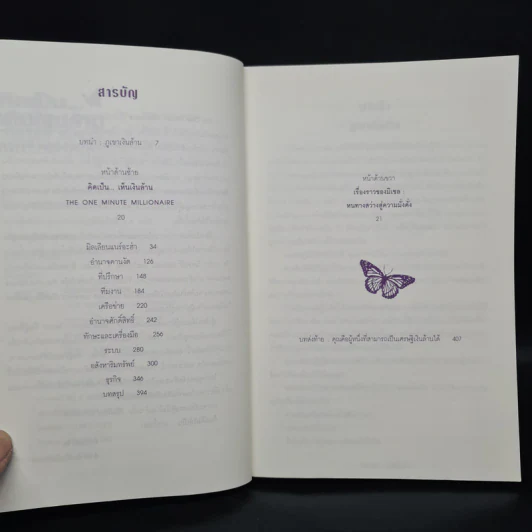 สารบัญ
บทนำ : ภูเขาเงินล้าน 7
หน้าด้านซ้าย
คิดเป็น... เห็นเงินล้าน
THE ONE MINUTE MILLIONAIRE
20
มิลเลียนแนร์อะฮ้า 54
อำนาจคานงัด 126
ที่ปรึกษา 148
ทีมงาน 184
เครือข่าย 220
อำนาจศักดิ์สิทธิ์ 242
ทักษะและเครื่องมือ 256
ระบบ 280
อสังหาริมทรัพย์ 300
ธุรกิจ 346
บทสรุป 394
หน้าด้านขวา
เรื่องราวของมิเชล :
หนทางสว่างสู่ความมั่งคั่ง
21
บทส่งท้าย : คุณคือผู้หนึ่งที่สามารถเป็นเศรษฐีเงินล้านได้ 407